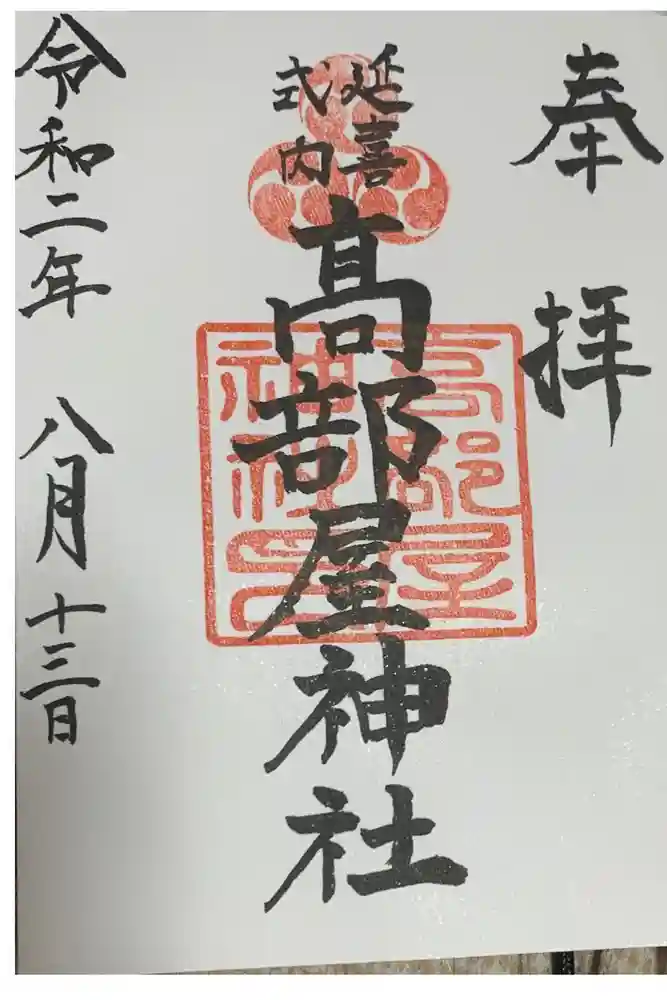 奉拝
延喜
式内
髙部屋神社
高部屋
神社
令和二年 八月十三日